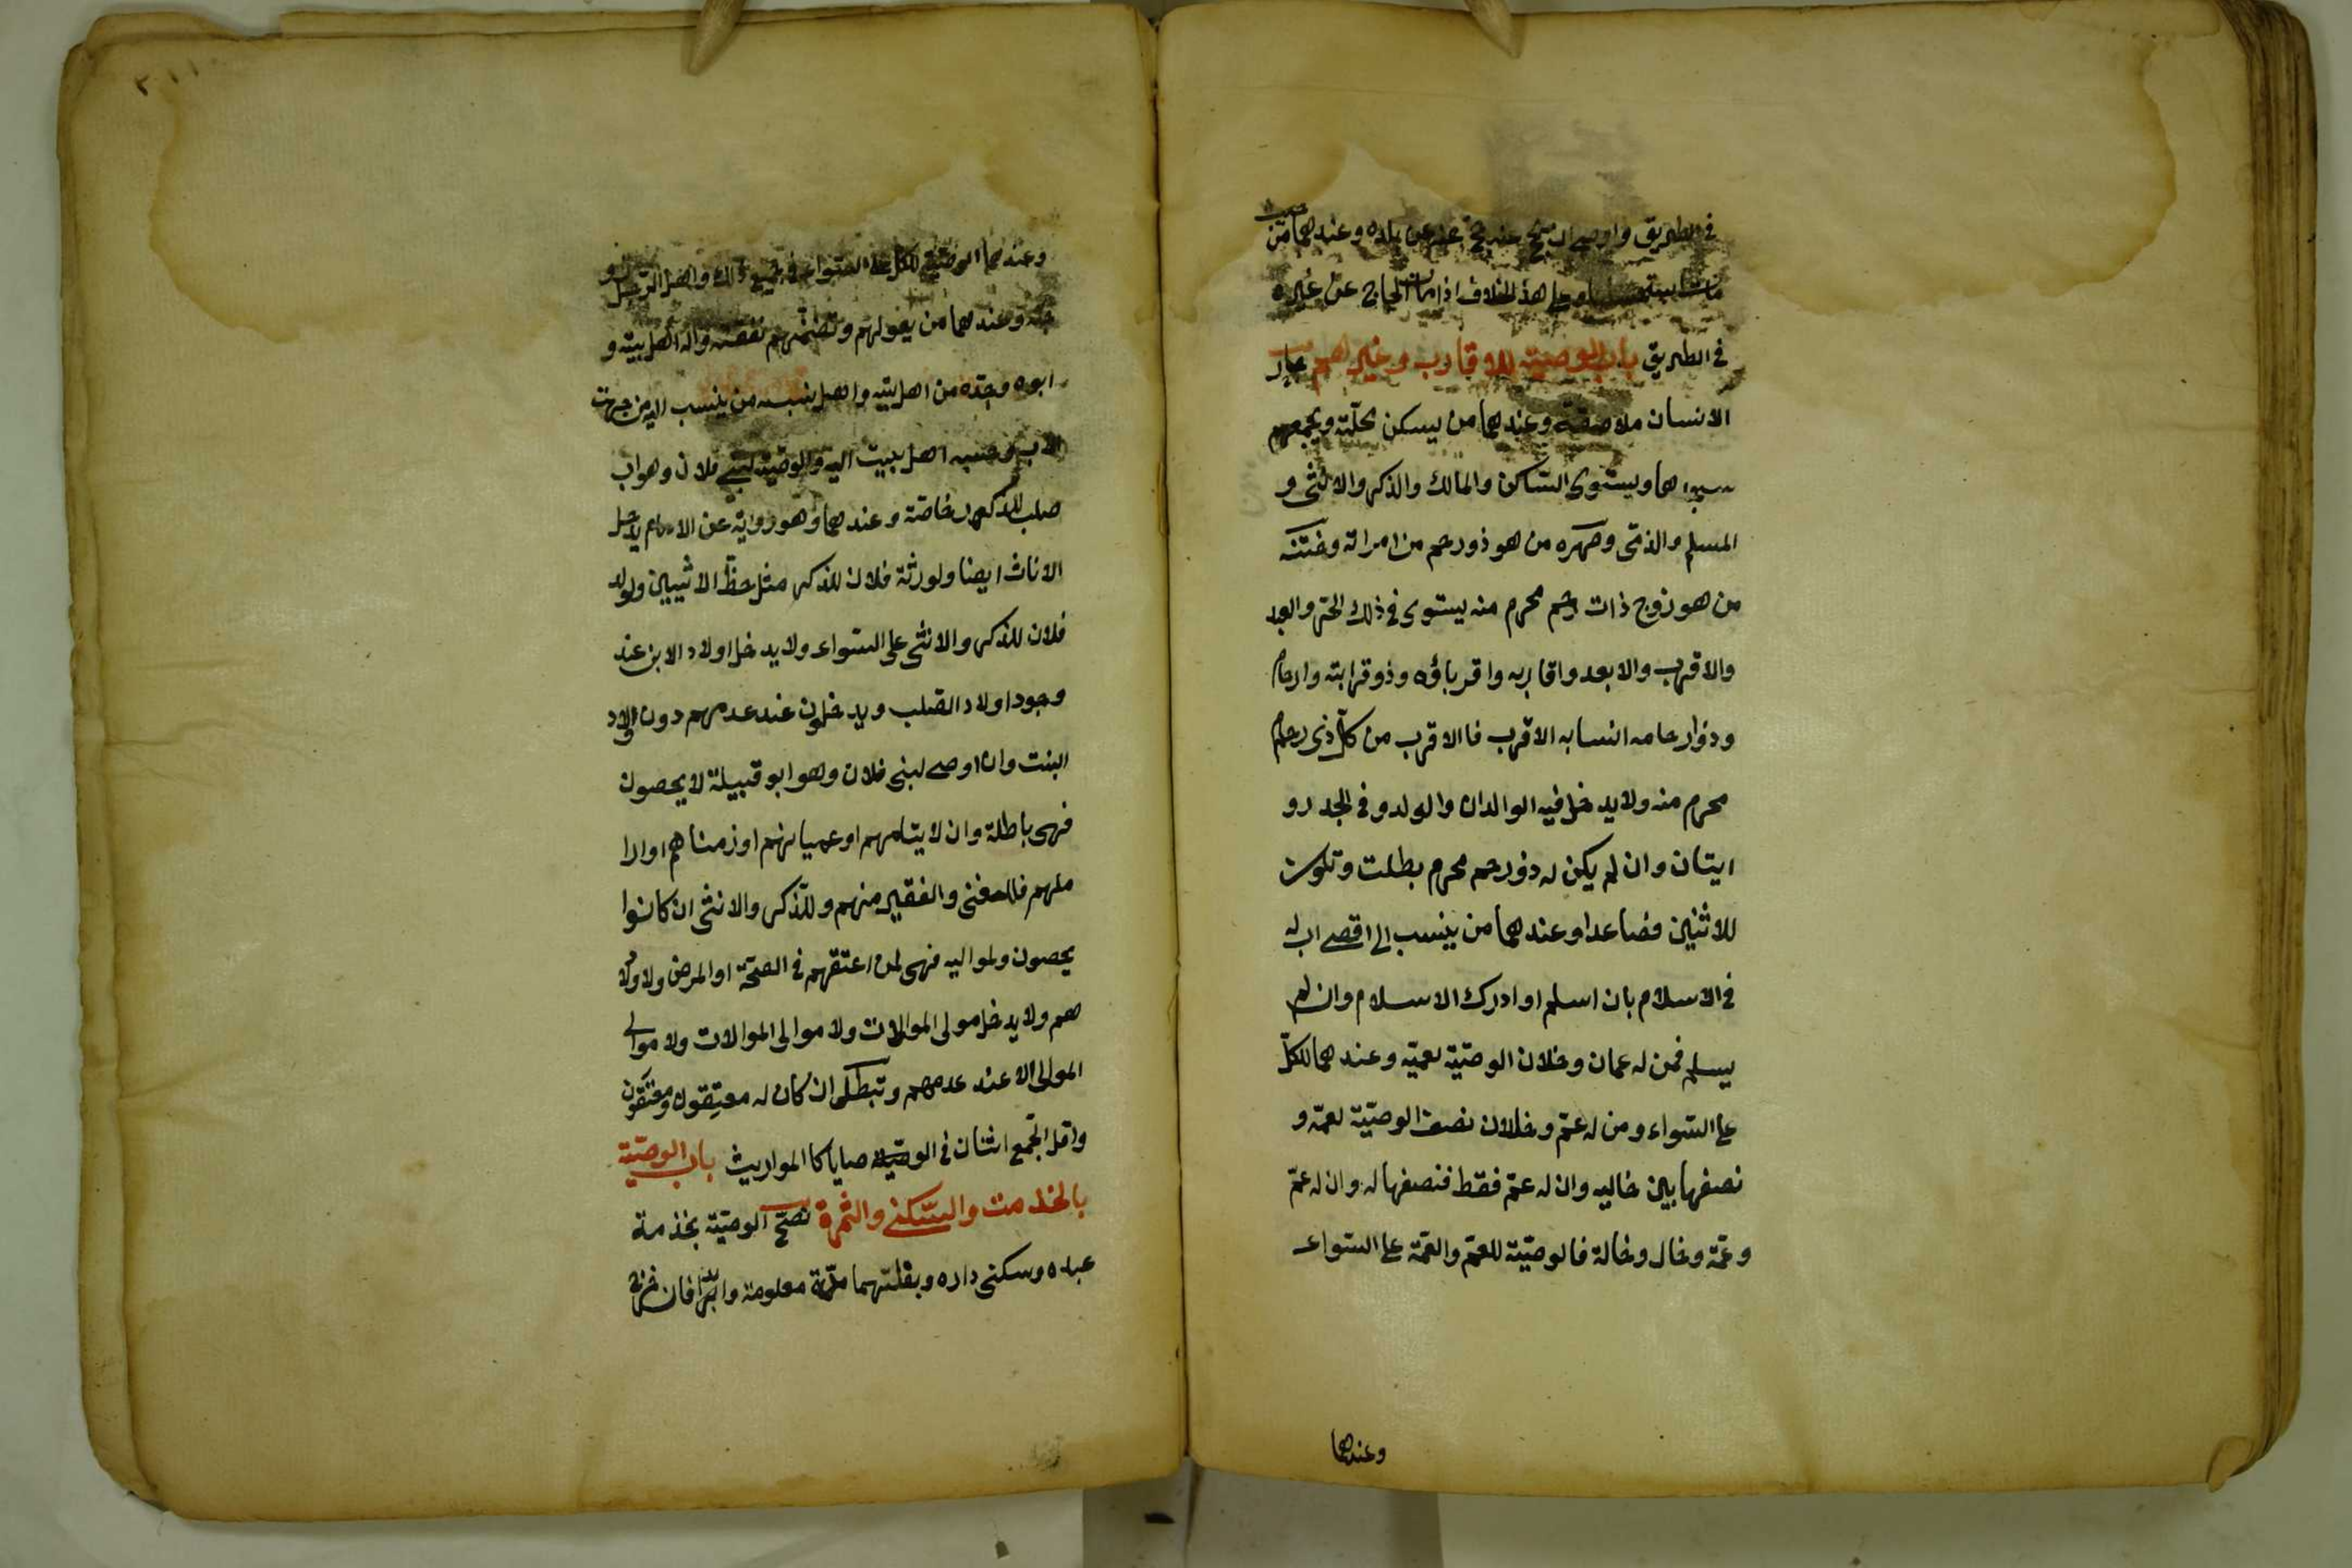 في الطريق واوصى ان يحج عنه يحج عنه من بلده وعندهما من حيث
مات استحسانا وعلى هذا الخلاف اذا مات الحاج عن غيره
في الطريق باب الوصيّة للاقارب وغيرهم جار
الانسان ملاصقه وعندهما من يسكن محلّته ويجمعهم
مسجدها ويستوي الساكن والمالك والذكر والانثى و
المسلم والذمّى وصهره من هو ذو رحم من امراته وختنه
من هو زوج ذات رحم محرم منه يستوى في ذلك الحرّ والعبد
والاقرب والابعد واقاربه واقرباؤه وذو قرابته وارحامه
وذوار حامه انسابه الاقرب فا الاقرب من كلّ ذى رحم
محرم منه ولا يدخل فيه الوالدان والولد وفي الجد رو
ايتان وان لم يكن له ذو رحم محرم بطلت وتكون
للاثنين فصاعدا وعندهما من ينسب الى اقصى اب له
في الاسلام بان اسلم او ادرك الاسلام وان لم
يسلم فمن له عمان وخلان الوصيّة لعميّه وعندهما للكلّ
على السّواء ومن له عمّ وخلان نصف الوصيّة لعمّه و
نصفها بين خاليه وان له عمّ فقط فنصفها له وان له عمّ
وعمّة وخال وخالة فالوصيّة للعمّ والعمّة على السّواء
وعندهما
٢٠١١
وعندهما الوصيّة للكل على السّواء في جميع ذلك واهل الرجل زو
جته وعندهما من يعولهم وتضمّهم نفقته واله اهل بيته و
ابوه وجدّه من اهل بيته واهل نسبه من ينسب اليه من جهت
الاب وجنسه اهل بيت ابيه والوصيّة لبني فلان وهو اب
صلب للذكور خاصّة وعندهما وهو رواية عن الامام يدخل
الاناث ايضا ولورثة فلان للذكر مثل حظّ الانثيين ولولد
فلان للذكر والانثى على السّواء ولا يدخل اولاد الابن عند
وجود اولاد الصّلب ويدخلون عند عدمهم دون اولاد
البنت وان اوصى لبني فلان وهو ابو قبيلة لا يحصون
فهى باطلة وان لايتامهم او عميانهم او زمناهم او ارا
ملهم فللغنى والفقير منهم وللذّكر والانثى ان كانوا
يحصون ولمواليه فهى لمن اعتقهم في الصحّة او المرض ولاولا
دهم ولا يدخل مولى الموالات ولا موالى الموالات ولا موالى
المولى الا عند عدمهم وتبطل ان كان له معتقون ومعتقون
واقل الجمع اثنان في الوصايا كا المواريث باب الوصيّة
بالخدمت والسّكنى والثمرة تصحّ الوصيّة بخدمة
عبده وسكنى داره وبغلّتهما مدّة معلومة وابدا فان خرج